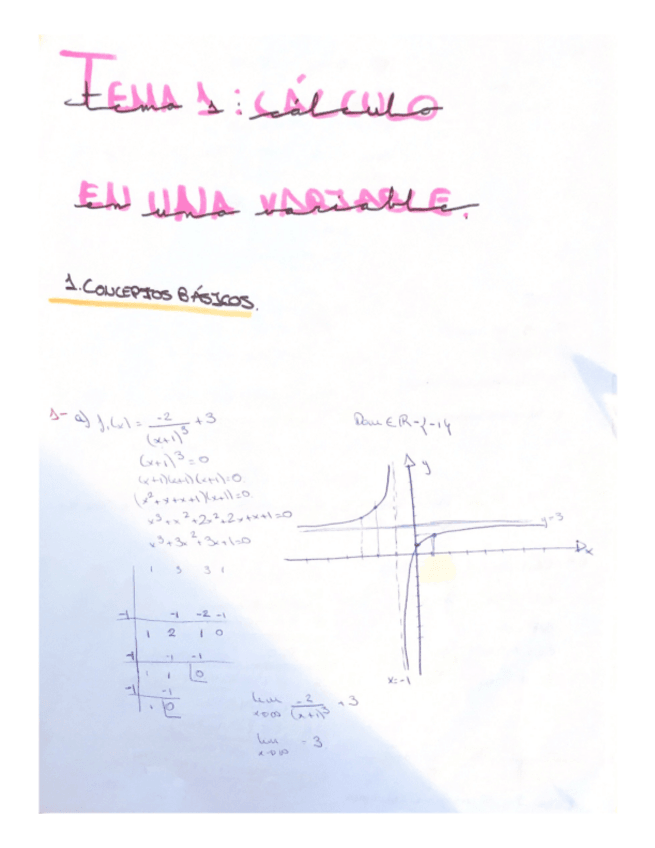 Tema 1: cálculo
en una variable.
1. CONCEPTOS BÁSICOS.
1- a) f1(x) = -2/(x+1)^3 + 3
Dom ∈ R - {-1}
(x+1)^3 = 0
(x+1)(x+1)(x+1)=0
(x^2+x+x+1)(x+1)=0
x^3+x^2+2x^2+2x+x+1=0
x^3+3x^2+3x+1=0
y
y=3
x
x=-1
1 3 3 1
-1 -1 -2 -1
1 2 1 0
-1 -1 -1
1 1 0
-1 -1
1 0
lim x→∞ -2/(x+1)^3 + 3
lim x→∞ = 3